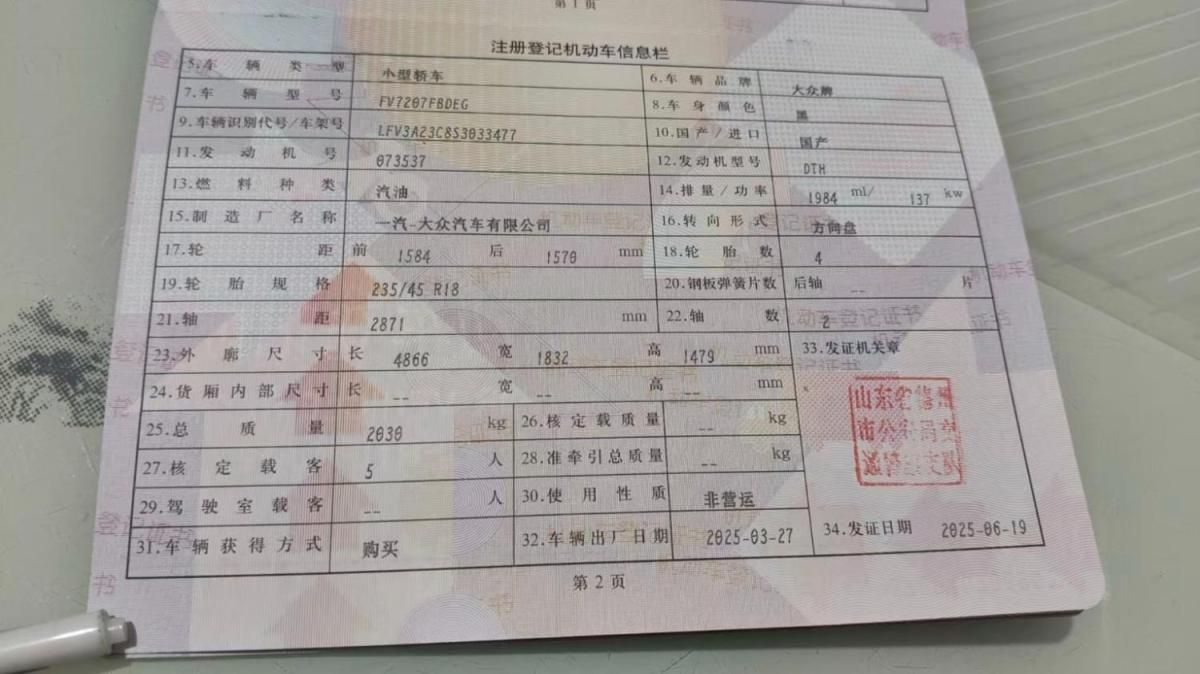 第1页
注册登记机动车信息栏
5.车辆类型 小型轿车 6.车辆品牌 大众牌
7.车辆型号 FV7207FBDEG 8.车身颜色 黑
9.车辆识别代号/车架号 LFV3A23C8S3033477 10.国产/进口 国产
11.发动机号 073537 12.发动机型号 DTH
13.燃料种类 汽油 14.排量/功率 1984 ml/ 137 kw
15.制造厂名称 一汽-大众汽车有限公司 16.转向形式 方向盘
17.轮距 前 1584 后 1570 mm 18.轮胎数 4
19.轮胎规格 235/45 R18 20.钢板弹簧片数 后轴 -- 片
21.轴距 2871 mm 22.轴数 2
23.外廓尺寸 长 4866 宽 1832 高 1479 mm 33.发证机关章
24.货厢内部尺寸 长 -- 宽 -- 高 -- mm
25.总质量 2030 kg 26.核定载质量 -- kg
27.核定载客 5 人 28.准牵引总质量 -- kg
29.驾驶室载客 -- 人 30.使用性质 非营运
31.车辆获得方式 购买 32.车辆出厂日期 2025-03-27 34.发证日期 2025-06-19
山东省德州
市公安局交
通警察支队
第2页